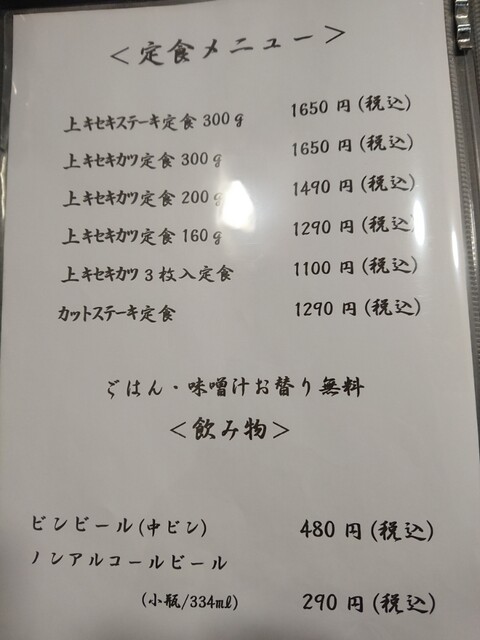 ＜定食メニュー＞
上キセキステーキ定食 300g 1650 円(税込)
上キセキカツ定食 300g 1650 円(税込)
上キセキカツ定食 200g 1490 円(税込)
上キセキカツ定食 160g 1290 円(税込)
上キセキカツ 3 枚入定食 1100 円(税込)
カットステーキ定食 1290 円(税込)
ごはん・味噌汁お替り無料
＜飲み物＞
ビンビール(中ビン) 480 円(税込)
ノンアルコールビール
(小瓶/334ml) 290 円(税込)